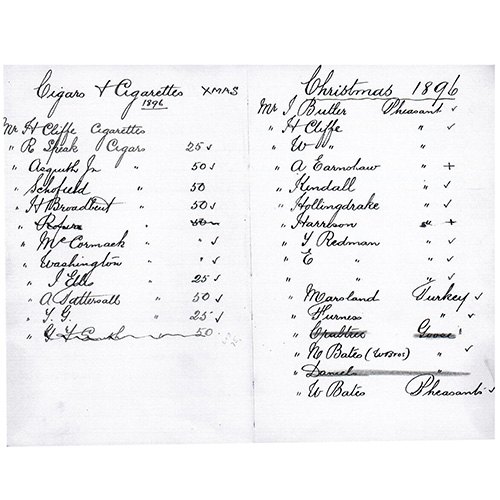 Cigars & Cigarettes XMAS
1896
Mr H Cliffe Cigarettes
" R Speak Cigars 25 ✓
" Asquith Jn " 50 ✓
" Schofield " 50
" H Broadbent " 50 ✓
" " 50
" McCormack " " ✓
" Washington " " ✓
" J Ellis " 25 ✓
" A Tattersall " 50 ✓
" T. G. " 25 ✓
" 50
Christmas 1896
Mr J Butler Pheasant ✓
" H Cliffe " ✓
" W " " ✓
" A Earnshaw " +
" Kendall " ✓
" Hollingdrake " ✓
" Harrison " +
" T Redman " ✓
" E " " ✓
" " ✓
" Marsland Turkey ✓
" Furness " ✓
" Crabtree Goose
" N Bates " ✓
" Daniel "
" W Bates Pheasants ✓